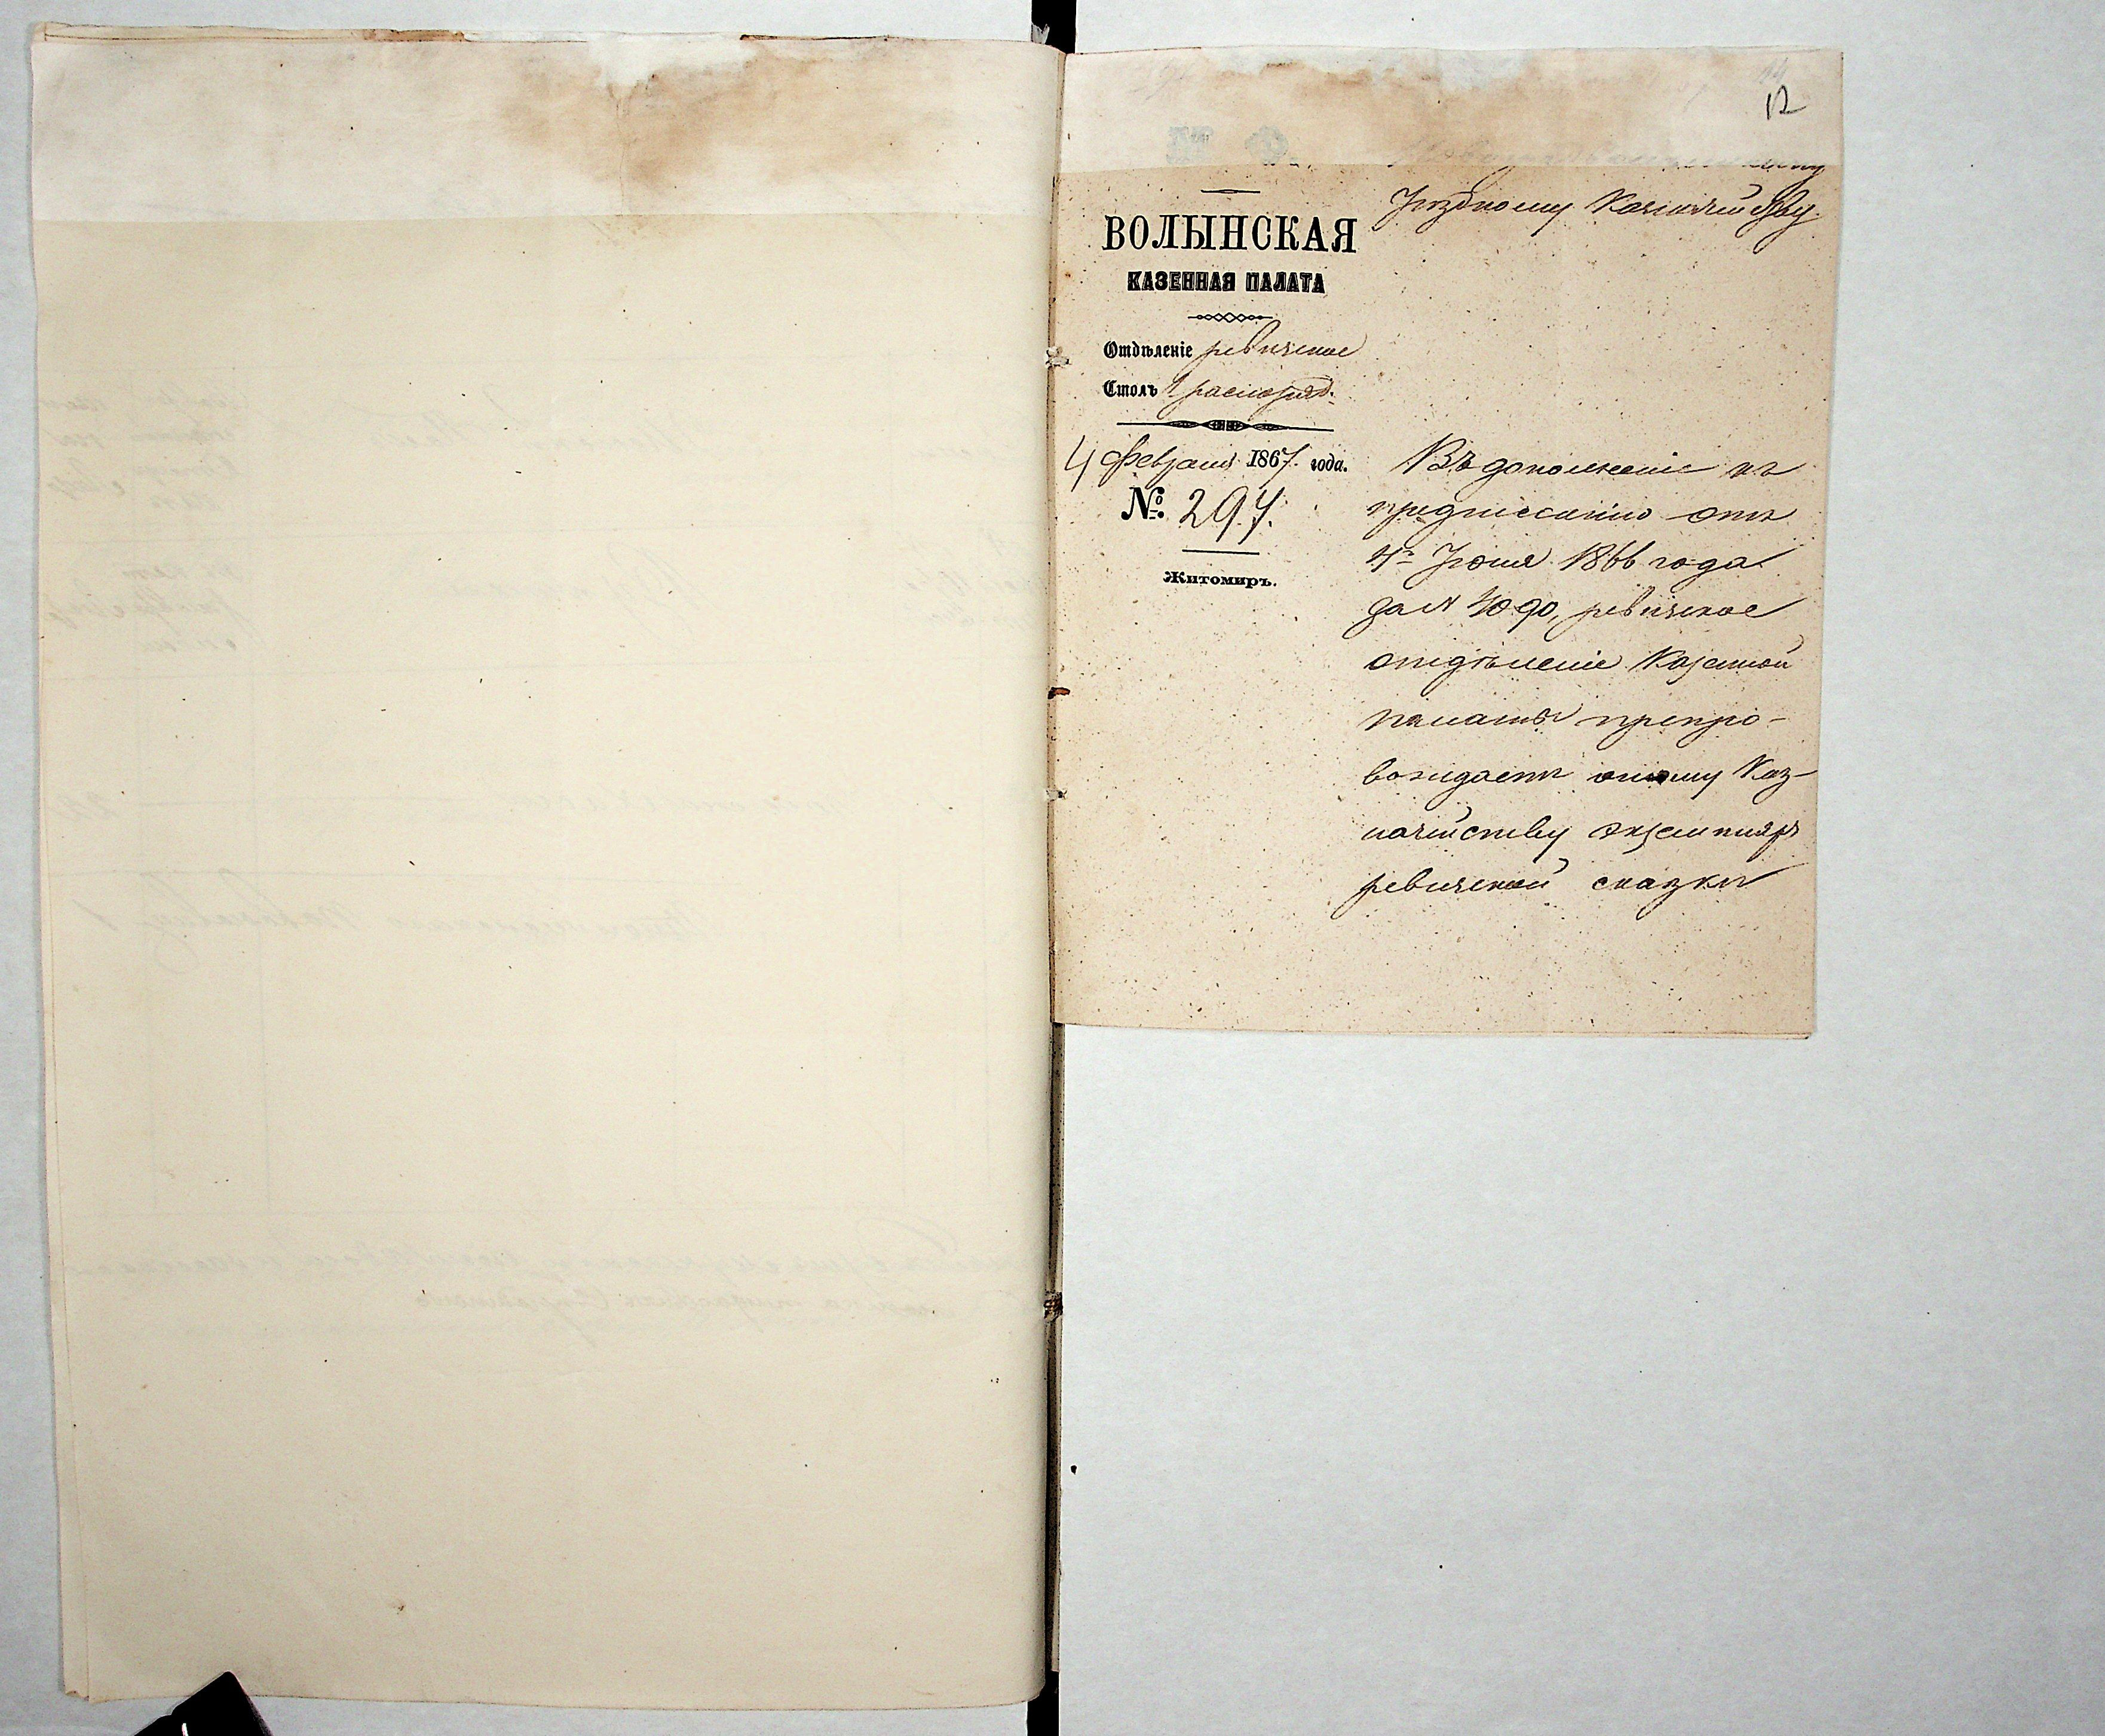 12
Уѣздному Казначейству.
ВОЛЫНСКАЯ
КАЗЕННАЯ ПАЛАТА
Отдѣленіе ревизское
Столъ 1 распоряд.
4 февраля 1867. года.
№. 297.
Житомиръ.
Въ дополненіе къ
предписанію отъ
4го Іюня 1866 года
за № 4090, ревизское
отдѣленіе Казенной
палаты препро-
вождаетъ оному Каз-
начейству экземпляръ
ревизской сказки